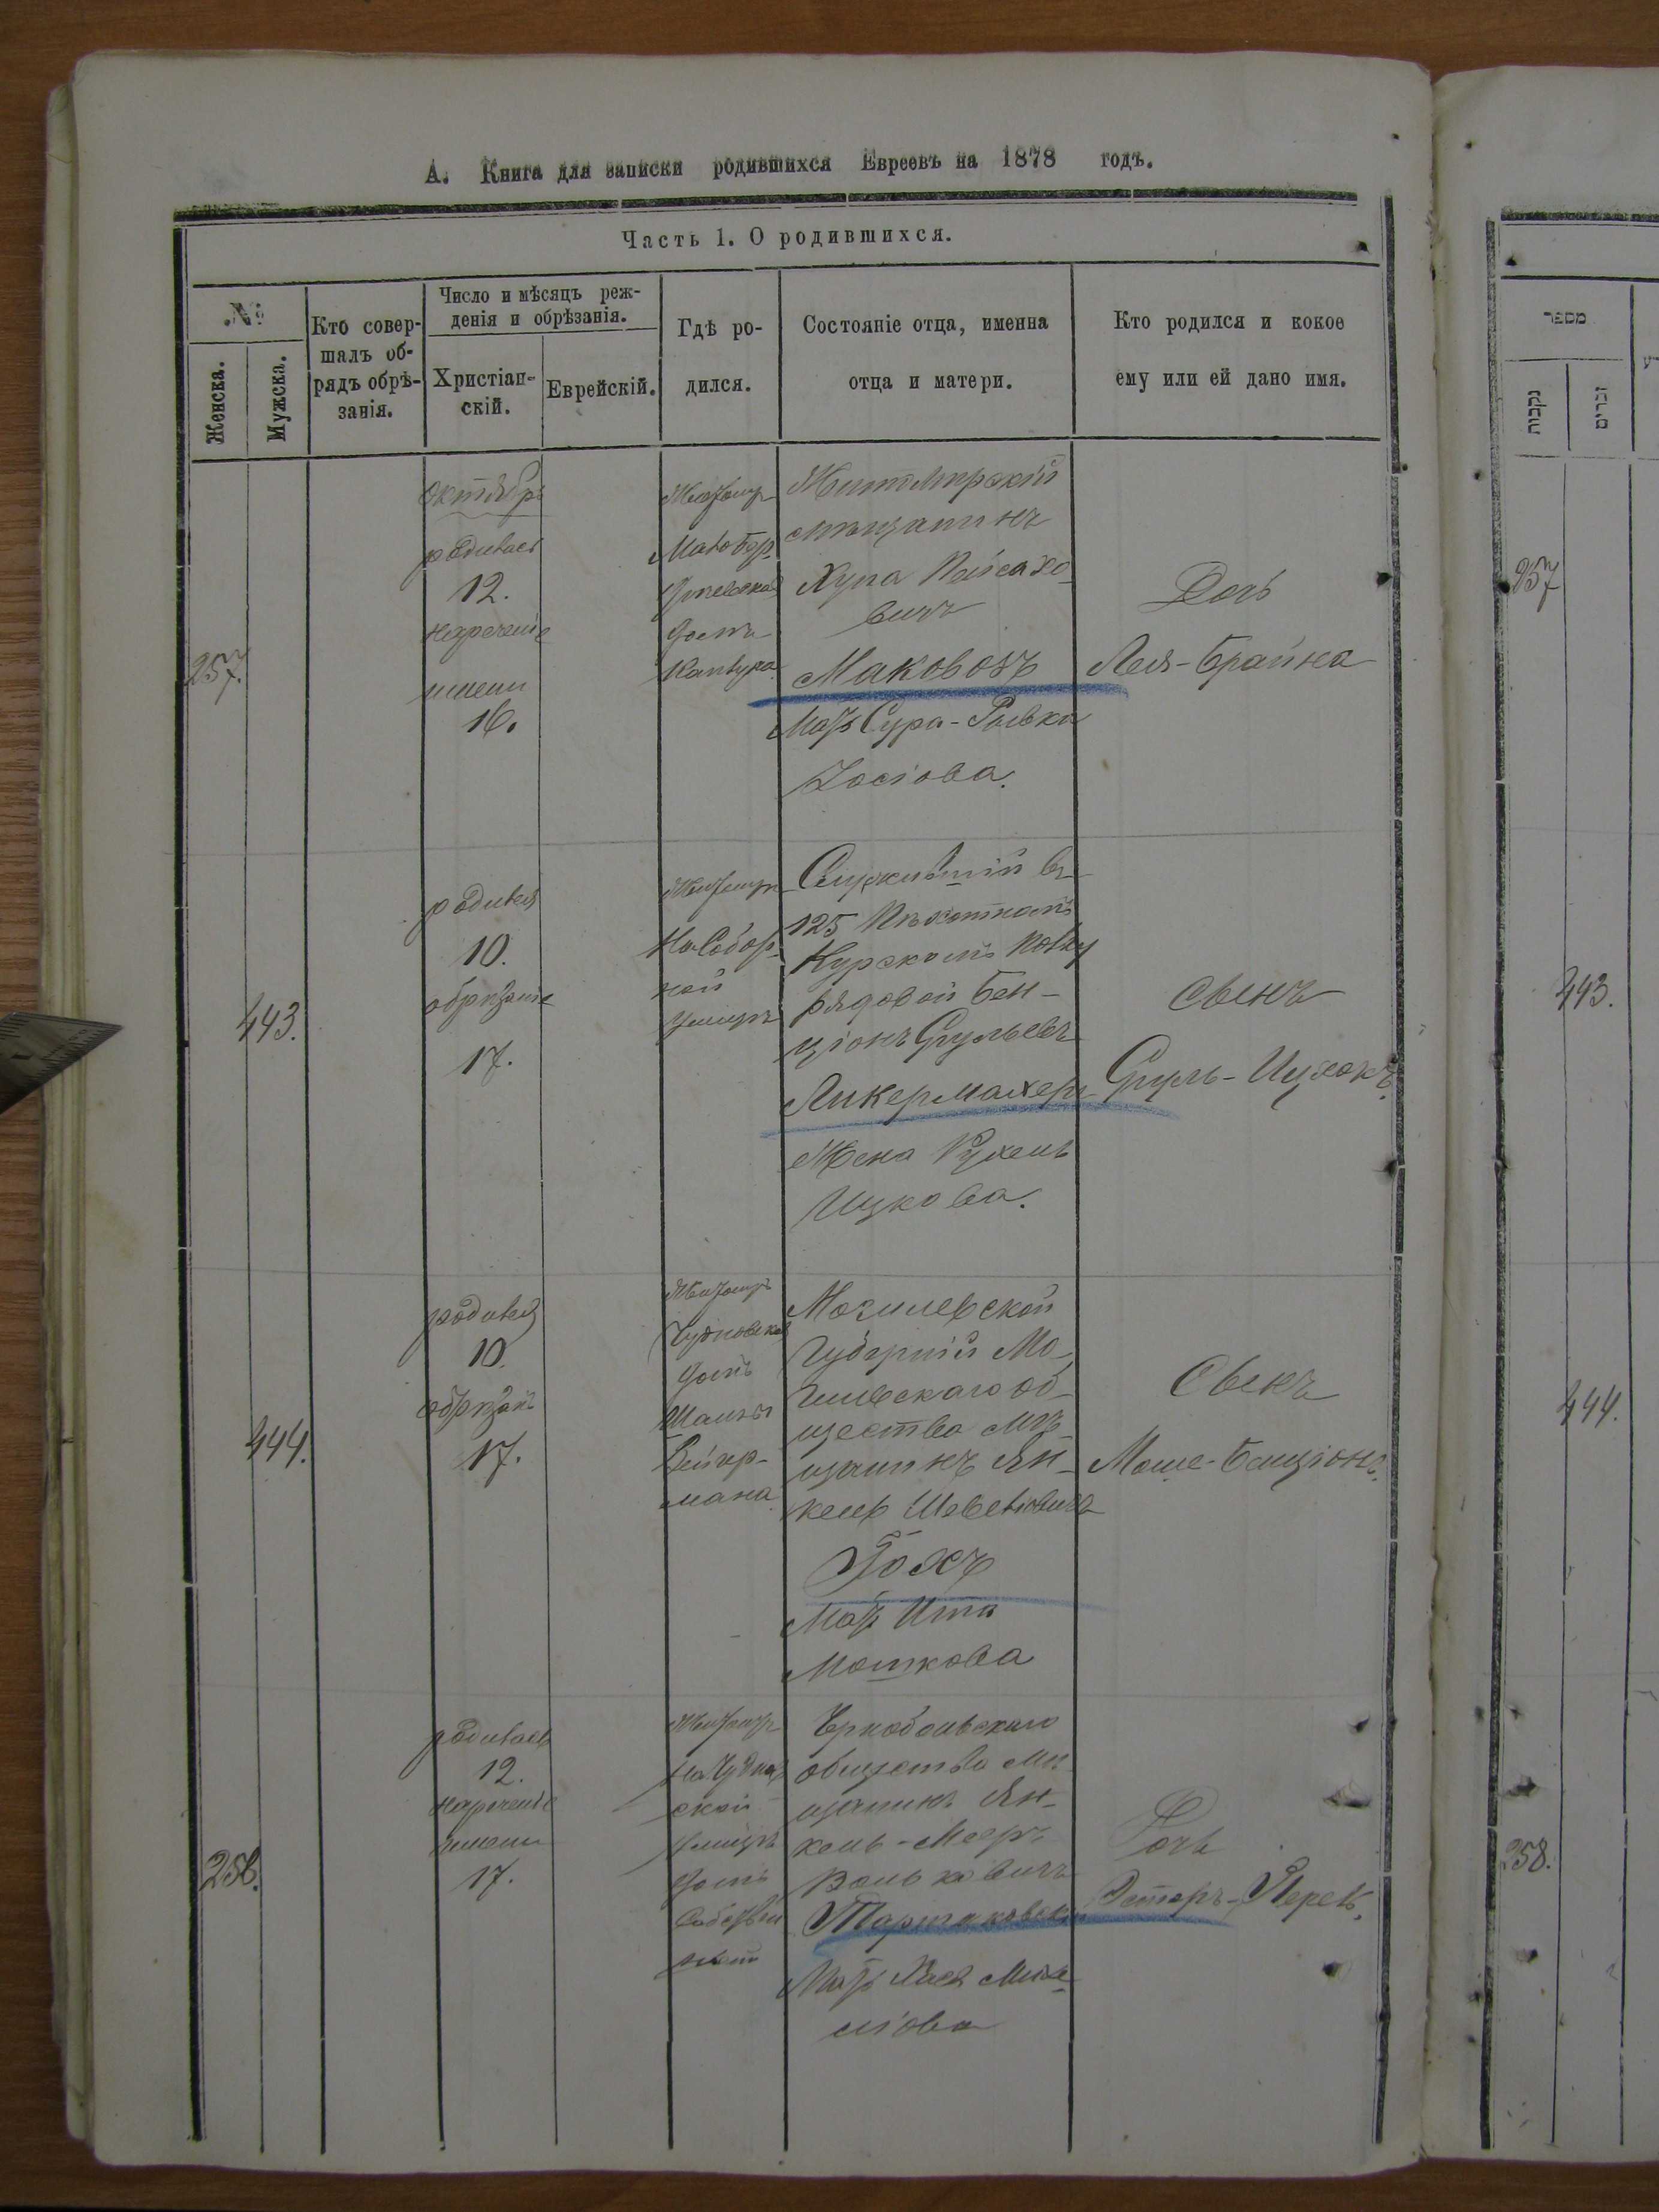 А. Книга для записки родившихся Евреевъ на 1878 годъ.
Часть 1. О родившихся.
№
Женска.
Мужска.
Кто совер-
шалъ об-
рядъ обрѣ-
занія.
Число и мѣсяцъ реж-
денія и обрѣзанія.
Христіан-
скій.
Еврейскій.
Гдѣ ро-
дился.
Состояніе отца, именна
отца и матери.
Кто родился и кокое
ему или ей дано имя.
257.
Октябрь
родилась
12.
нареченіе
имени
16.
Житомир
домъ
Житомирскій
мѣщанинъ
Пейсахо-
вичъ
Маковозъ
Мать Сура-Рывка
Іосіова.
Дочь
Лея-Брайна
443.
родился
10.
обрѣзаніе
17.
Житомир
На Собор-
ной
улицѣ
Служившій въ
125 Пѣхотномъ
Курскомъ полку
рядовой Бен-
ціонъ Срульевъ
Ликермахеръ
Жена Рухель
Ицкова.
Сынъ
Сруль-Ицхокъ.
444.
родился
10.
обрѣзанъ
17.
Житомиръ
Чудновская
домъ
мана
Могилевской
Губерніи Мо-
гилевскаго об-
щества мѣ-
щанинъ Ян-
кель
Мать Ита
Мошкова
Сынъ
Моше-Бенціонъ.
258.
родилась
12.
нареченіе
имени
17.
Житомир
На Чуднов
ской
улицѣ
домъ
Чернобыльскаго
общества мѣ-
щанинъ Ян-
кель-Мееръ
Вольковичъ
Тартаковскій
Мать Хася Михе-
ліова
Дочь
Эстеръ-Перель.
מספר
נקבות
זכרים
257
443.
444.
258.